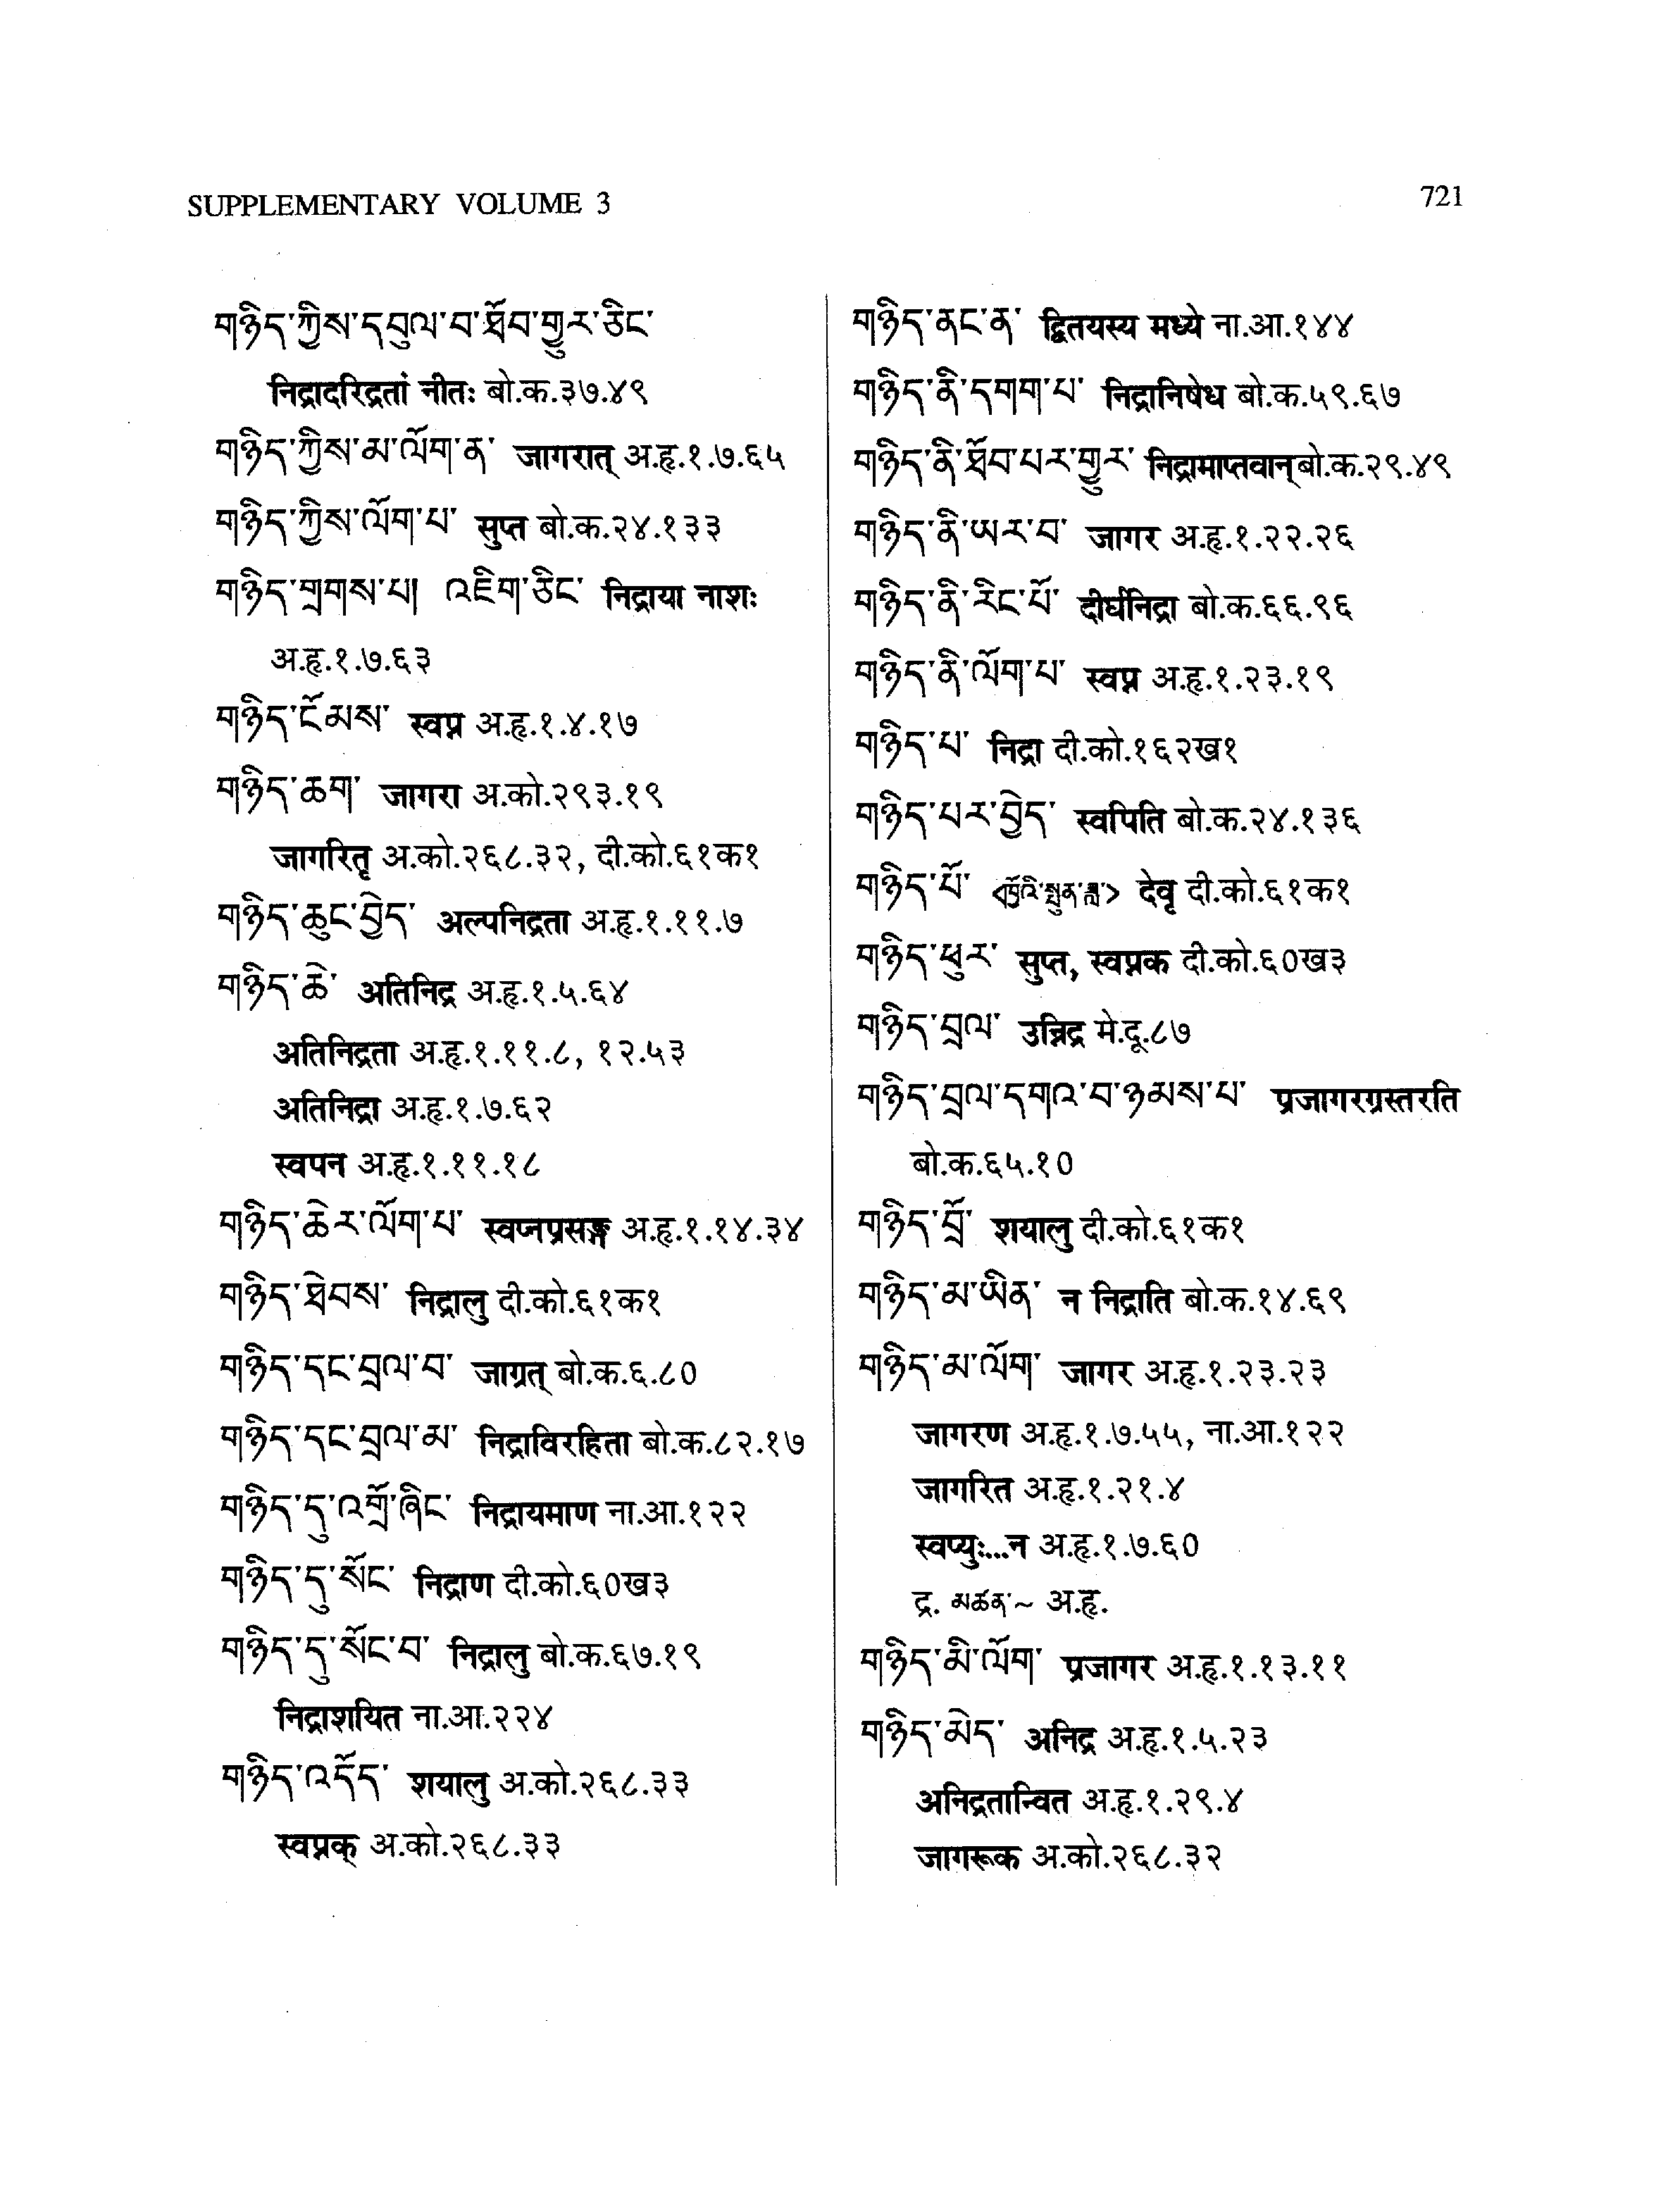 SUPPLEMENTARY VOLUME 3
721
གཉིད་ཀྱིས་དབུལ་བ་ཐོབ་གྱུར་ཅིང་
निद्रादरिद्रतां नीतः बो.क.३७.४९
གཉིད་ཀྱིས་མ་ལོག་ན་ जागरात् अ.हृ.१.७.६५
གཉིད་ཀྱིས་ལོག་པ་ सुप्त बो.क.२४.१३३
གཉིད་གྲགས་པ། འཇིག་ཅིང་ निद्राया नाशः
अ.हृ.१.७.६३
གཉིད་ངོམས་ स्वप्न अ.हृ.१.४.१७
གཉིད་ཆག་ जागरा अ.को.२९३.१९
जागरितृ अ.को.२६८.३२, दी.को.६१क१
གཉིད་ཆུང་བྱེད་ अल्पनिद्रता अ.हृ.१.११.७
གཉིད་ཆེ་ अतिनिद्र अ.हृ.१.५.६४
अतिनिद्रता अ.हृ.१.११.८, १२.५३
अतिनिद्रा अ.हृ.१.७.६२
स्वपन अ.हृ.१.११.१८
གཉིད་ཆེར་ལོག་པ་ स्वप्नप्रसङ्ग अ.हृ.१.१४.३४
གཉིད་ཐེབས་ निद्रालु दी.को.६१क१
གཉིད་དང་བྲལ་བ་ जाग्रत् बो.क.६.८०
གཉིད་དང་བྲལ་མ་ निद्राविरहिता बो.क.८२.१७
གཉིད་དུ་འགྲོ་ཞིང་ निद्रायमाण ना.आ.१२२
གཉིད་དུ་སོང་ निद्राण दी.को.६०ख३
གཉིད་དུ་སོང་བ་ निद्रालु बो.क.६७.१९
निद्राशयित ना.आ.२२४
གཉིད་འདོད་ शयालु अ.को.२६८.३३
स्वप्नक् अ.को.२६८.३३
གཉིད་ནང་ན་ द्वितयस्य मध्ये ना.आ.१४४
གཉིད་ནི་དགག་པ་ निद्रानिषेध बो.क.५९.६७
གཉིད་ནི་ཐོབ་པར་གྱུར་ निद्रामाप्तवान् बो.क.२९.४९
གཉིད་ནི་ཡར་བ་ जागर अ.हृ.१.२२.२६
གཉིད་ནི་རིང་པོ་ दीर्घनिद्रा बो.क.६६.९६
གཉིད་ནི་ལོག་པ་ स्वप्न अ.हृ.१.२३.१९
གཉིད་པ་ निद्रा दी.को.१६२ख१
གཉིད་པར་བྱེད་ स्वपिति बो.क.२४.१३६
གཉིད་པོ་ <ཁྱོའི་སྤུན་ཟླ་> देवृ दी.को.६१क१
གཉིད་ཕུར་ सुप्त, स्वप्नक दी.को.६०ख३
གཉིད་བྲལ་ उन्निद्र मे.दू.८७
གཉིད་བྲལ་དགའ་བ་ཉམས་པ་ प्रजागरग्रस्तरति
बो.क.६५.१०
གཉིད་བྲོ་ शयालु दी.को.६१क१
གཉིད་མ་ཡིན་ न निद्राति बो.क.१४.६९
གཉིད་མ་ལོག་ जागर अ.हृ.१.२३.२३
जागरण अ.हृ.१.७.५५, ना.आ.१२२
जागरित अ.हृ.१.२१.४
स्वप्युः...न अ.हृ.१.७.६०
द्र. མཚན་~ अ.हृ.
གཉིད་མི་ལོག་ प्रजागर अ.हृ.१.१३.११
གཉིད་མེད་ अनिद्र अ.हृ.१.५.२३
अनिद्रतान्वित अ.हृ.१.२९.४
जागरूक अ.को.२६८.३२